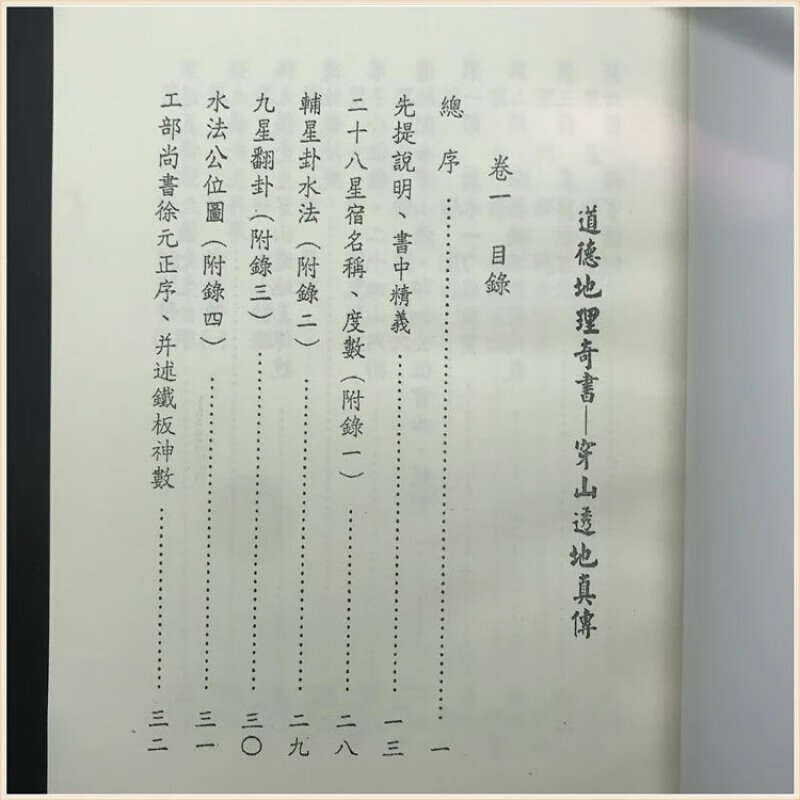 道德地理奇書—穿山透地真傳
卷一 目錄
總序⋯⋯⋯⋯⋯⋯⋯⋯⋯⋯一
先提說明、書中精義⋯⋯⋯⋯⋯⋯一三
二十八星宿名稱、度數(附錄一)⋯⋯⋯⋯二八
輔星卦水法(附錄二)⋯⋯⋯⋯⋯⋯二九
九星翻卦(附錄三)⋯⋯⋯⋯⋯⋯三〇
水法公位圖(附錄四)⋯⋯⋯⋯⋯⋯三一
工部尚書徐元正序、并述鐵板神數⋯⋯⋯⋯三二